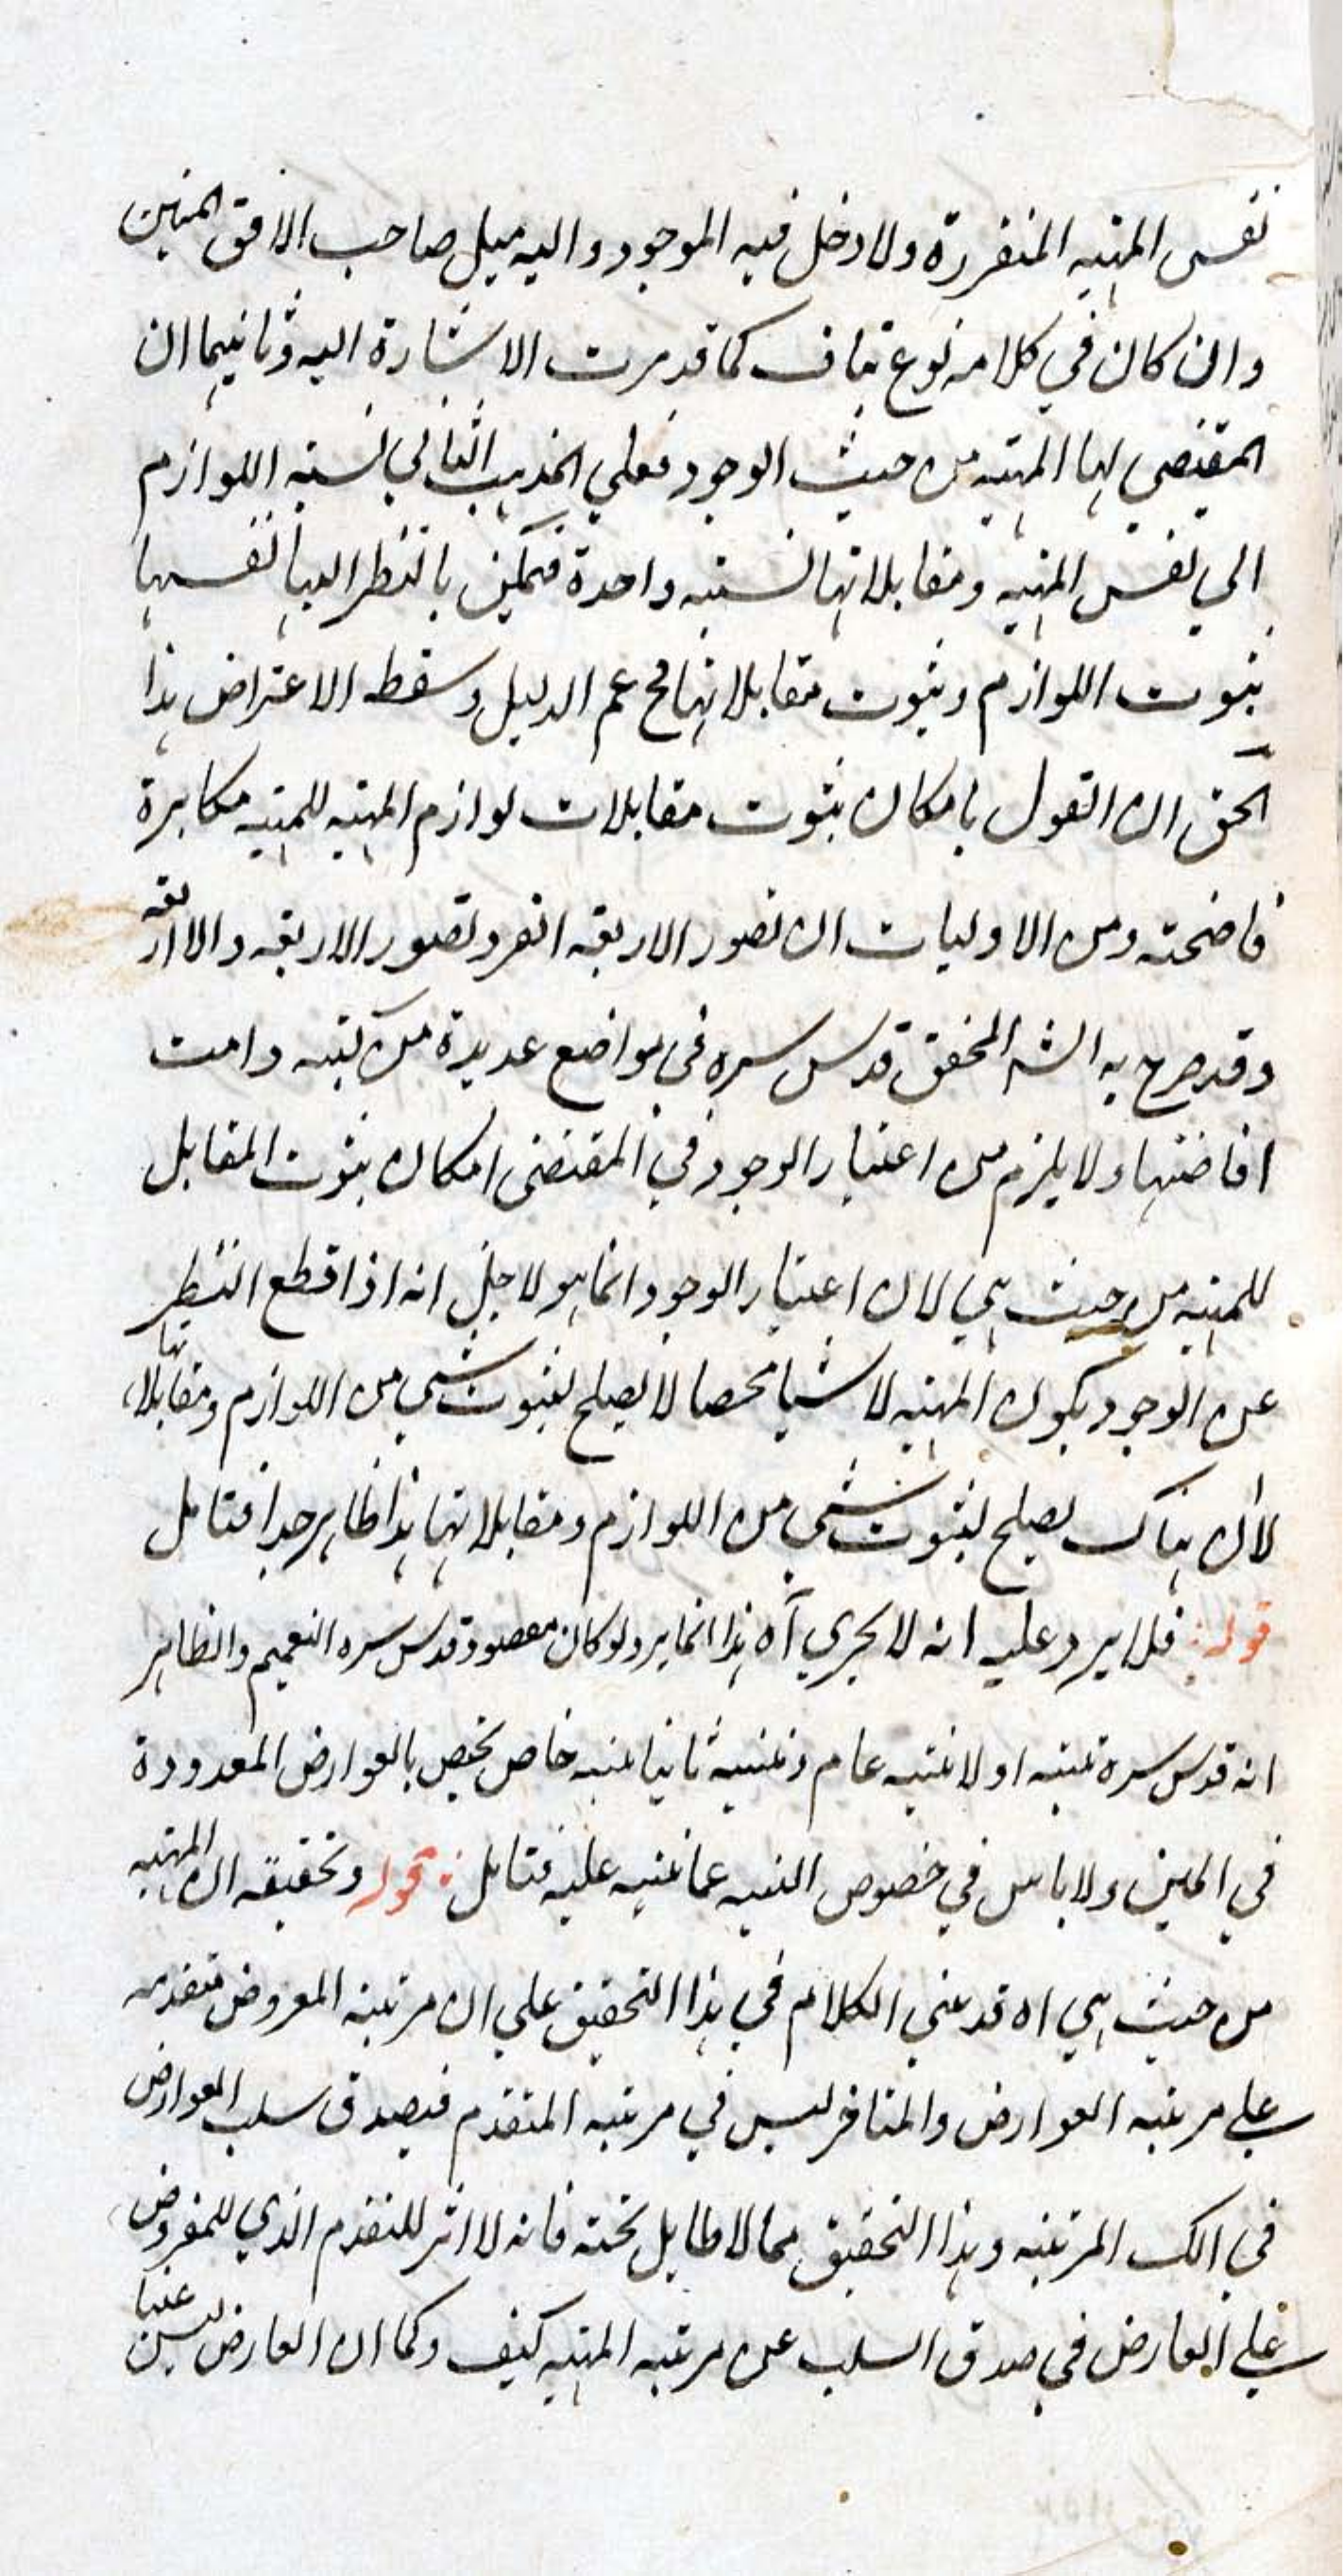 نفس المهية المتقررة ولا دخل فيه الموجود واليه ميل صاحب الافق المبين
وان كان في كلامه نوع تناف كما قد مرت الاشارة اليه وثانيهما ان
المقتضي لها المهية من حيث الوجود فعلي المذهب الثاني نسبة اللوازم
الي نفس المهية ومقابلاتها نسبة واحدة فيمكن بالنظر اليها نفسها
ثبوت اللوازم وثبوت مقابلاتها فح عم الدليل وسقط الاعتراض هذا
الحق ان القول بامكان ثبوت مقابلات لوازم المهية للمهية مكابرة
فاضحة ومن الاوليات ان تصور الاربعة الفرد تصور الاربعة والا اربعة
وقد صرح به الشه المحقق قدس سره في مواضع عديدة من كتبه دامت
افاضتها ولا يلزم من اعتبار الوجود في المقتضى امكان ثبوت المقابل
للمهية من حيث هي لان اعتبار الوجود انما هو لاجل انه اذا قطع النظر
عن الوجود يكون المهية لا شيا محصا لا يصلح لثبوت شي من اللوازم ومقابلاتها
لا ان هناك يصلح لثبوت شي من اللوازم ومقابلاتها هذا ظاهر جدا فتامل
قوله فلا يرد عليه انه لا يجري آه هذا انما يرد لو كان مقصوده قدس سره التعميم والظاهر
انه قدس سره نبه اولا بتنبيه عام وتنبيه ثانيا تنبيه خاص يختص بالعوارض المعدودة
في المتن ولا باس في خصوص التنبيه عما نبه عليه فتامل قوله وتحقيقه ان المهية
من حيث هي اه قد بني الكلام في هذا التحقيق علي ان مرتبة المعروض متقدمه
علي مرتبة العوارض والمتاخر ليس في مرتبة المتقدم فيصدق سلب العوارض
في تلك المرتبة وهذا التحقيق مما لا طايل تحته فانه لا اثر للتقدم الذي للمعروض
علي العارض في صدق السلب عن مرتبة المهية كيف وكما ان العارض ليس عينا